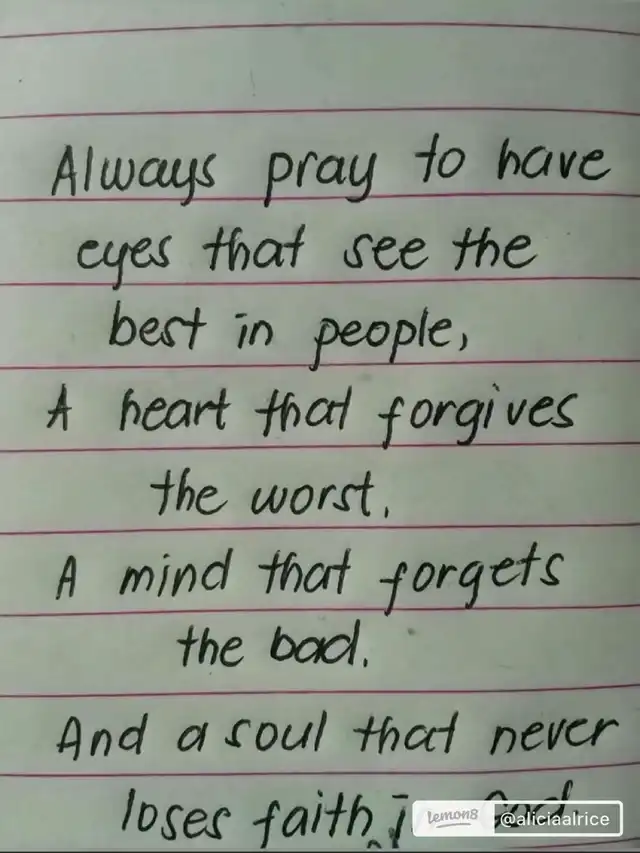 Always pray to have
eyes that see the
best in people,
A heart that forgives
the worst.
A mind that forgets
the bad.
And a soul that never
loses faith
lemon8 @aliciaalrice